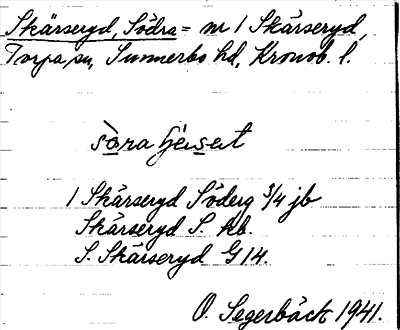 Skärseryd, Södra = nr 1 Skärseryd,
Torpa sn, Sunnerbo hd, Kronob. l.
1 Skärseryd Söderg 3/4 jb
Skärseryd S. kb.
S. Skärseryd G 14.
O. Segerbäck 1941.